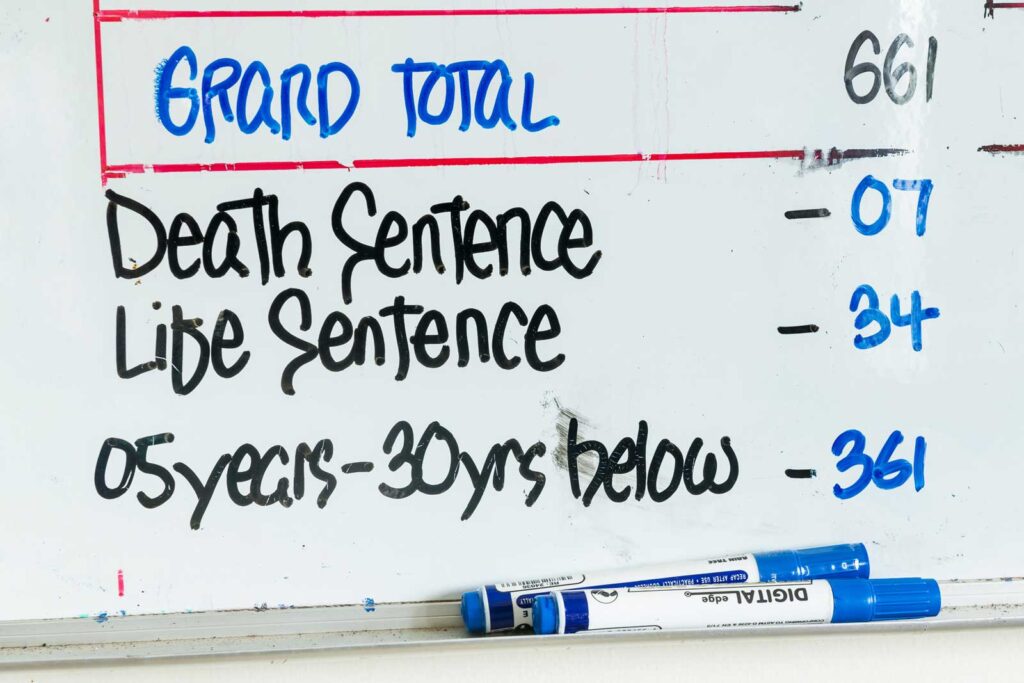 GRAND TOTAL 661
Death Sentence - 07
Life Sentence - 34
05years-30yrs below - 361
RECAP AFTER USE • PRACTICALLY
DIGITAL edge